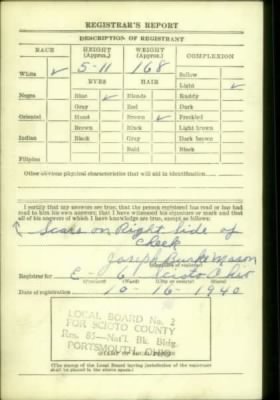 REGISTRAR'S REPORT
DESCRIPTION OF REGISTRANT
RACE HEIGHT (Approx.) WEIGHT (Approx.) COMPLEXION
White ✓ 5-11 168 Sallow
EYES HAIR Light ✓
Negro Blue ✓ Blonde Ruddy
Gray Red Dark
Oriental Hazel Brown ✓ Freckled
Brown Black Light brown
Indian Black Gray Dark brown
Bald Black
Filipino
Other obvious physical characteristics that will aid in identification
I certify that my answers are true; that the person registered has read or has had
read to him his own answers; that I have witnessed his signature or mark and that
all of his answers of which I have knowledge are true, except as follows:
Scar on Right Side of
Cheek
Joseph Burke Mason
(Signature of registrar)
Registrar for E- 6 Scioto Ohio
(Precinct) (Ward) (City or county) (State)
Date of registration 10-16-1940
LOCAL BOARD No. 2
FOR SCIOTO COUNTY
Rm. 85-Nat'l. Bk. Bldg.
PORTSMOUTH, OHIO
STAMP OF LOCAL BOARD
(The stamp of the Local Board having jurisdiction of the registrant
shall be placed in the above space.)